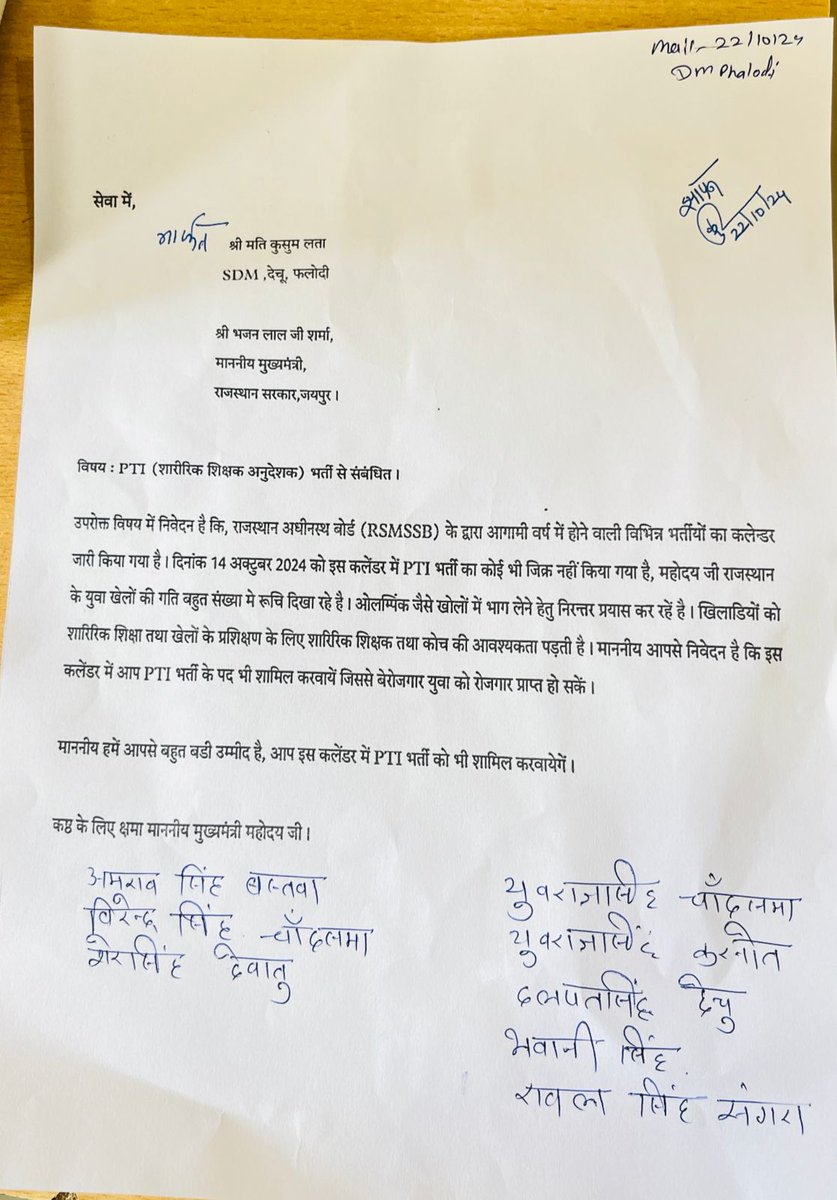 Mail - 22/10/24
DM Phalodi
22/10/24
सेवा में,
मार्फत श्री मति कुसुम लता
SDM ,देचू, फलोदी
श्री भजन लाल जी शर्मा,
माननीय मुख्यमंत्री,
राजस्थान सरकार,जयपुर ।
विषय : PTI (शारीरिक शिक्षक अनुदेशक) भर्ती से संबंधित ।
उपरोक्त विषय में निवेदन है कि, राजस्थान अधीनस्थ बोर्ड (RSMSSB) के द्वारा आगामी वर्ष में होने वाली विभिन्न भर्तीयों का कलेन्डर
जारी किया गया है । दिनांक 14 अक्टुबर 2024 को इस कलेंडर में PTI भर्ती का कोई भी जिक्र नहीं किया गया है, महोदय जी राजस्थान
के युवा खेलों की गति बहुत संख्या मे रूचि दिखा रहे है । ओलम्पिंक जैसे खोलों में भाग लेने हेतु निरन्तर प्रयास कर रहें है । खिलाडियों को
शारिरिक शिक्षा तथा खेलों के प्रशिक्षण के लिए शारिरिक शिक्षक तथा कोच की आवश्यकता पड़ती है । माननीय आपसे निवेदन है कि इस
कलेंडर में आप PTI भर्ती के पद भी शामिल करवायें जिससे बेरोजगार युवा को रोजगार प्राप्त हो सकें ।
माननीय हमें आपसे बहुत बडी उम्मीद है, आप इस कलेंडर में PTI भर्ती को भी शामिल करवायेगें ।
कष्ठ के लिए क्षमा माननीय मुख्यमंत्री महोदय जी ।
अमराव सिंह बस्तवा
विरेन्द्र सिंह चाँदसमा
शेरसिंह देवातु
युवराजसिंह चाँदसमा
युवराजसिंह करनोत
दलपतसिंह देचु
भवानी सिंह
रावल सिंह सगरा